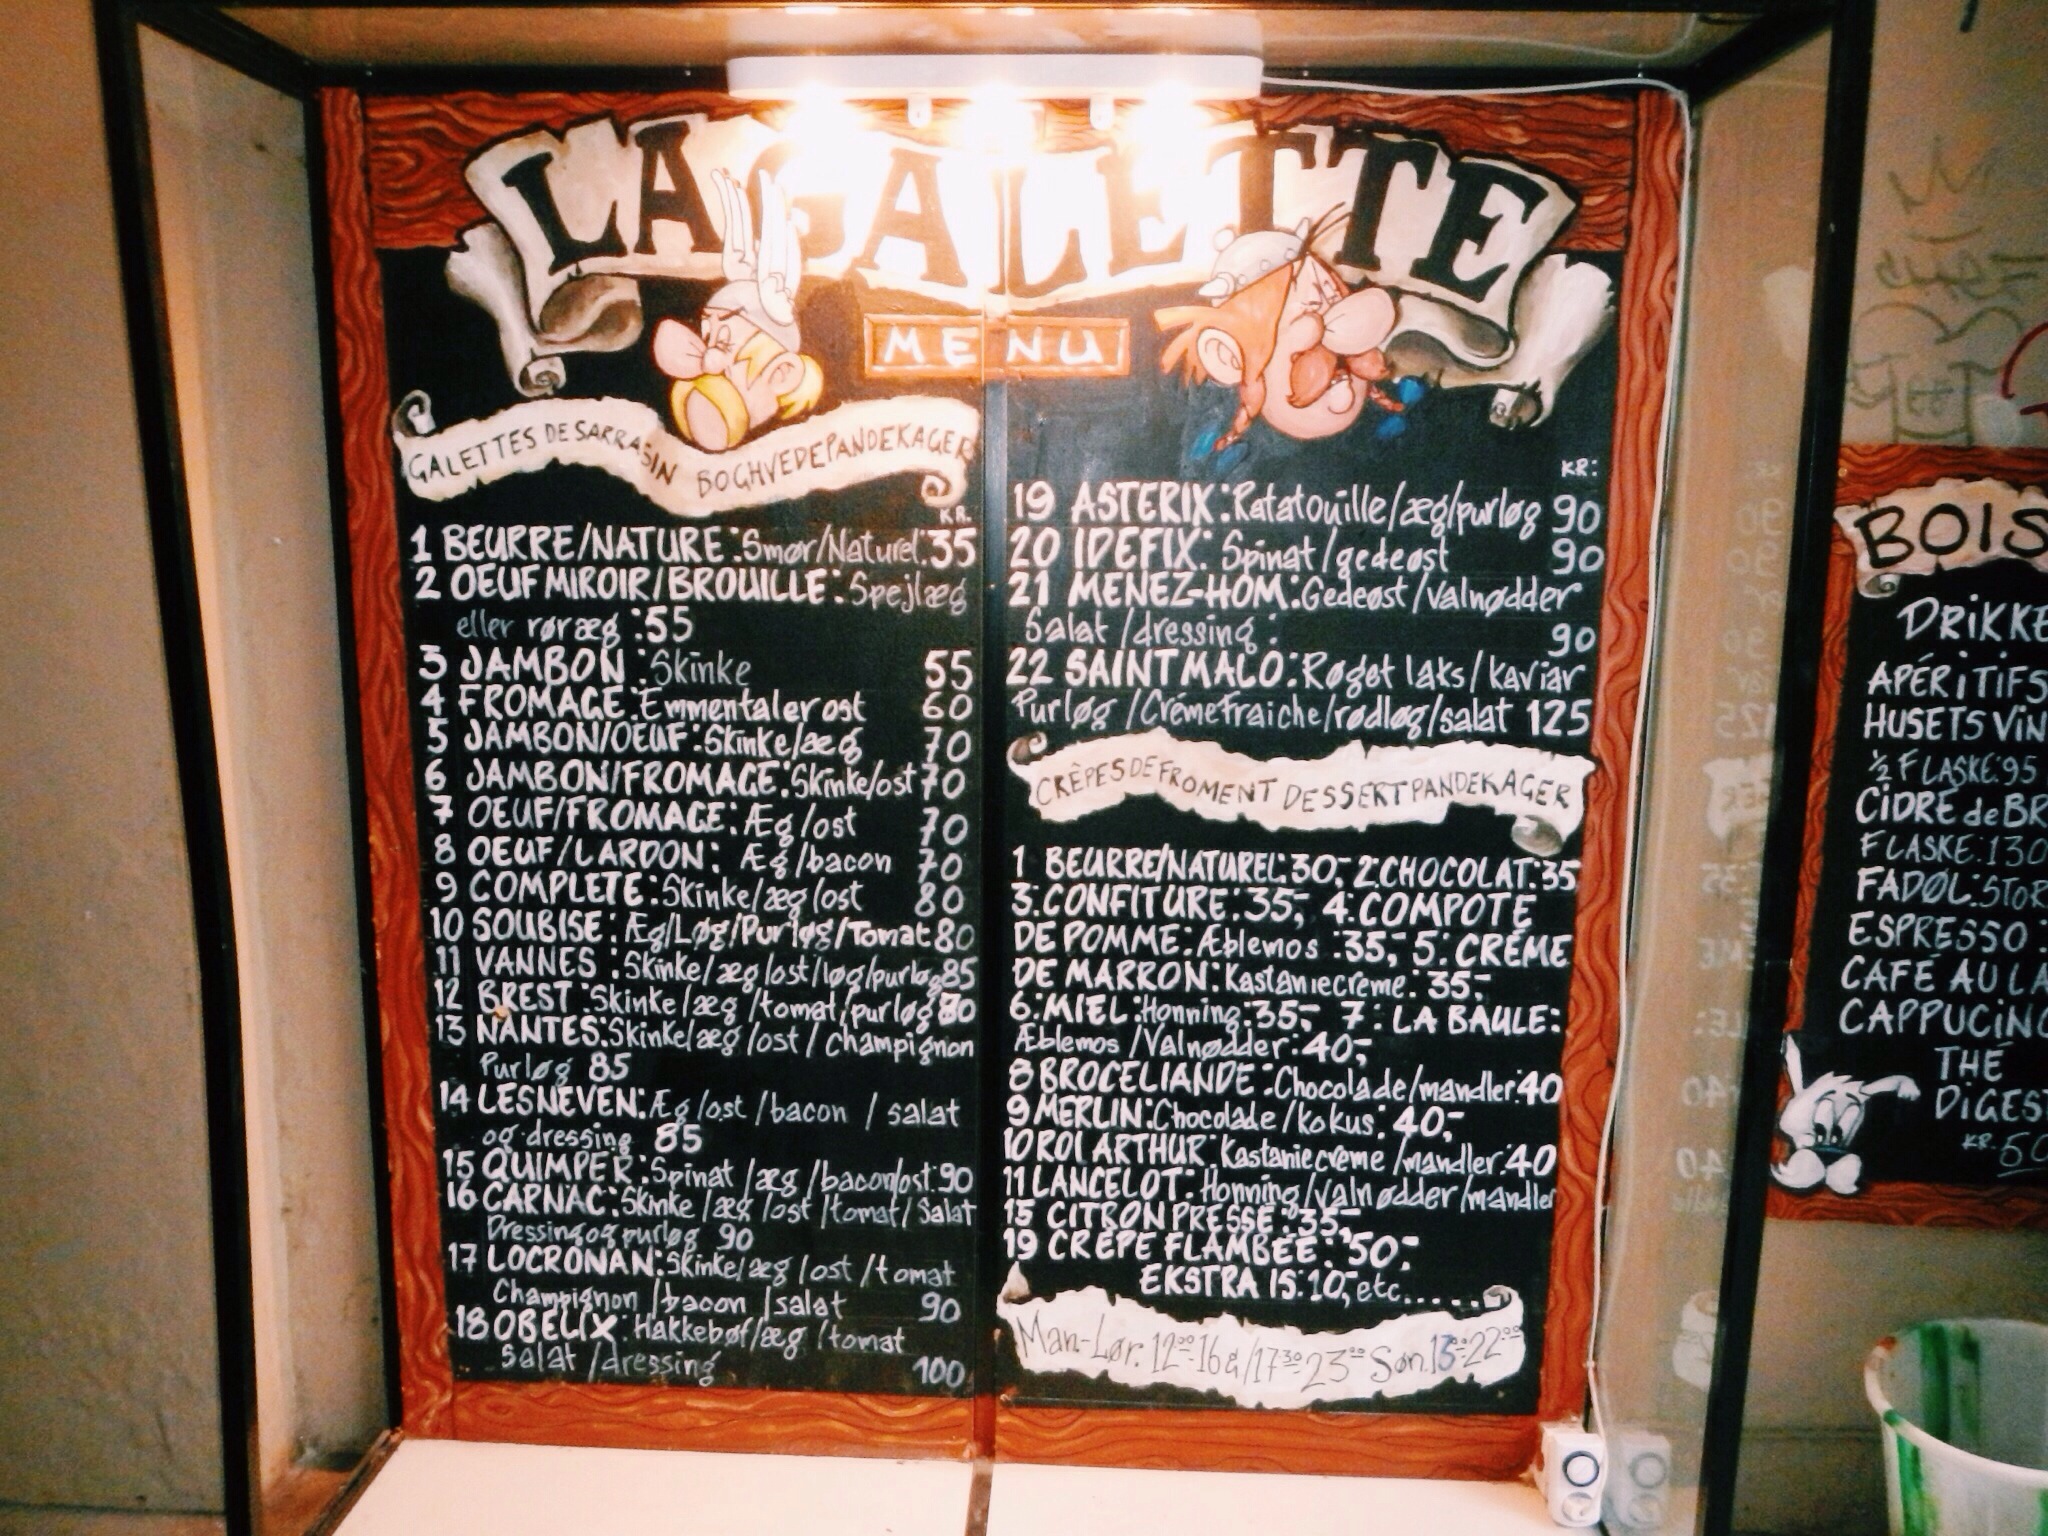 LA GALETTE
MENU
GALETTES DE SARRASIN BOGHVEDEPANDEKAGER
KR.
1 BEURRE/NATURE: Smør/Naturel: 35
2 OEUF MIROIR/BROUILLE: Spejlæg
eller røræg: 55
3 JAMBON: Skinke 55
4 FROMAGE: Emmentaler ost 60
5 JAMBON/OEUF: Skinke/æg 70
6 JAMBON/FROMAGE: Skinke/ost 70
7 OEUF/FROMAGE: Æg/ost 70
8 OEUF/LARDON: Æg/bacon 70
9 COMPLETE: Skinke/æg/ost 80
10 SOUBISE: Æg/Løg/Purløg/Tomat 80
11 VANNES: Skinke/æg/ost/løg/purløg 85
12 BREST: Skinke/æg/tomat/purløg 80
13 NANTES: Skinke/æg/ost/champignon
Purløg 85
14 LESNEVEN: Æg/ost/bacon/salat
og dressing 85
15 QUIMPER: Spinat/æg/bacon/ost: 90
16 CARNAC: Skinke/æg/ost/tomat/Salat
Dressing og purløg 90
17 LOCRONAN: Skinke/æg/ost/tomat
Champignon/bacon/salat 90
18 OBELIX: Hakkebøf/æg/tomat
Salat/dressing 100
KR:
19 ASTERIX: Ratatouille/æg/purløg 90
20 IDEFIX: Spinat/gedeøst 90
21 MENEZ-HOM: Gedeøst/valnødder
Salat/dressing: 90
22 SAINT MALO: Røget laks/kaviar
Purløg/Crémefraiche/rødløg/salat 125
CRÊPES DE FROMENT DESSERTPANDEKAGER
1 BEURRE/NATUREL: 30,- 2: CHOCOLAT: 35
3: CONFITURE: 35,- 4: COMPOTE
DE POMME: Æblemos: 35,- 5: CRÉME
DE MARRON: Kastaniecreme: 35,-
6: MIEL: Honning: 35,- 7: LA BAULE:
Æblemos/Valnødder: 40,-
8 BROCELIANDE: Chocolade/mandler: 40
9 MERLIN: Chocolade/kokus: 40,-
10 ROI ARTHUR: Kastaniecreme/mandler: 40
11 LANCELOT: Honning/valnødder/mandler
15 CITRON PRESSE: 35,-
19 CRÊPE FLAMBÉE: 50,-
EKSTRA IS: 10,- etc.....
Man-Lør. 12⁰⁰-16 & 17³⁰-23⁰⁰ Søn. 13⁰⁰-22⁰⁰
BOIS
DRIKKE
APÉRITIFS
HUSETS VIN
½ FLASKE: 95
CIDRE de BR
FLASKE: 130
FADØL: STOR
ESPRESSO:
CAFÉ AU LA
CAPPUCINO
THÉ
DIGEST
KR. 50